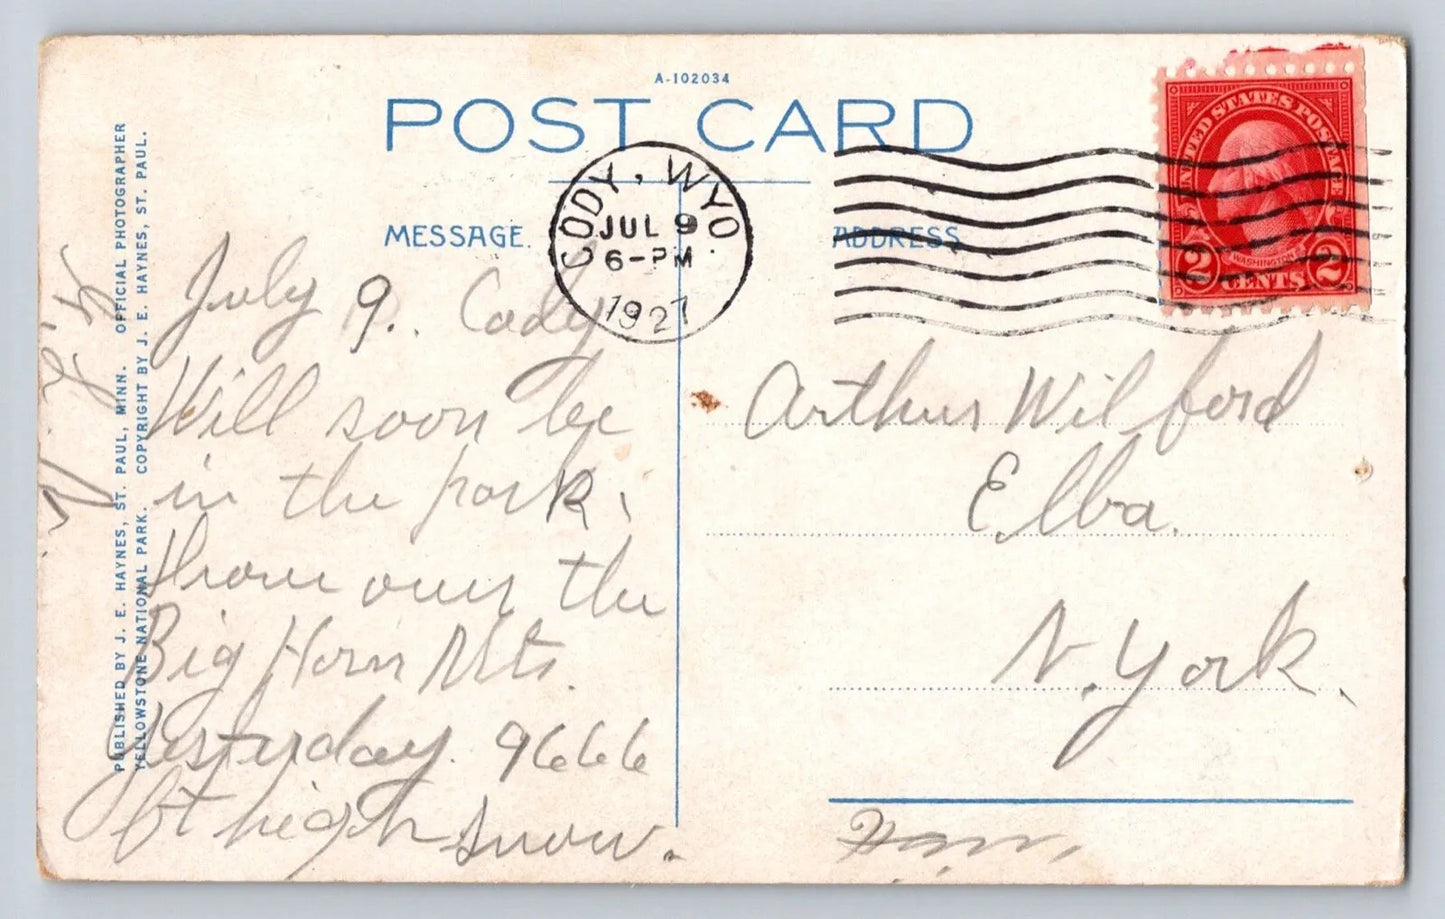 A-102034
POST CARD
CODY, WYO.
JUL 9
6-PM
1927
UNITED STATES POSTAGE
WASHINGTON
2 CENTS 2
MESSAGE.
ADDRESS
July 9. Cody
Will soon be
in the park.
Drove over the
Big Horn Mts.
Yesterday. 9666
ft high snow.
Arthur Wilford
Elba.
N. York.
PUBLISHED BY J. E. HAYNES, ST. PAUL, MINN. OFFICIAL PHOTOGRAPHER
YELLOWSTONE NATIONAL PARK. COPYRIGHT BY J. E. HAYNES, ST. PAUL.